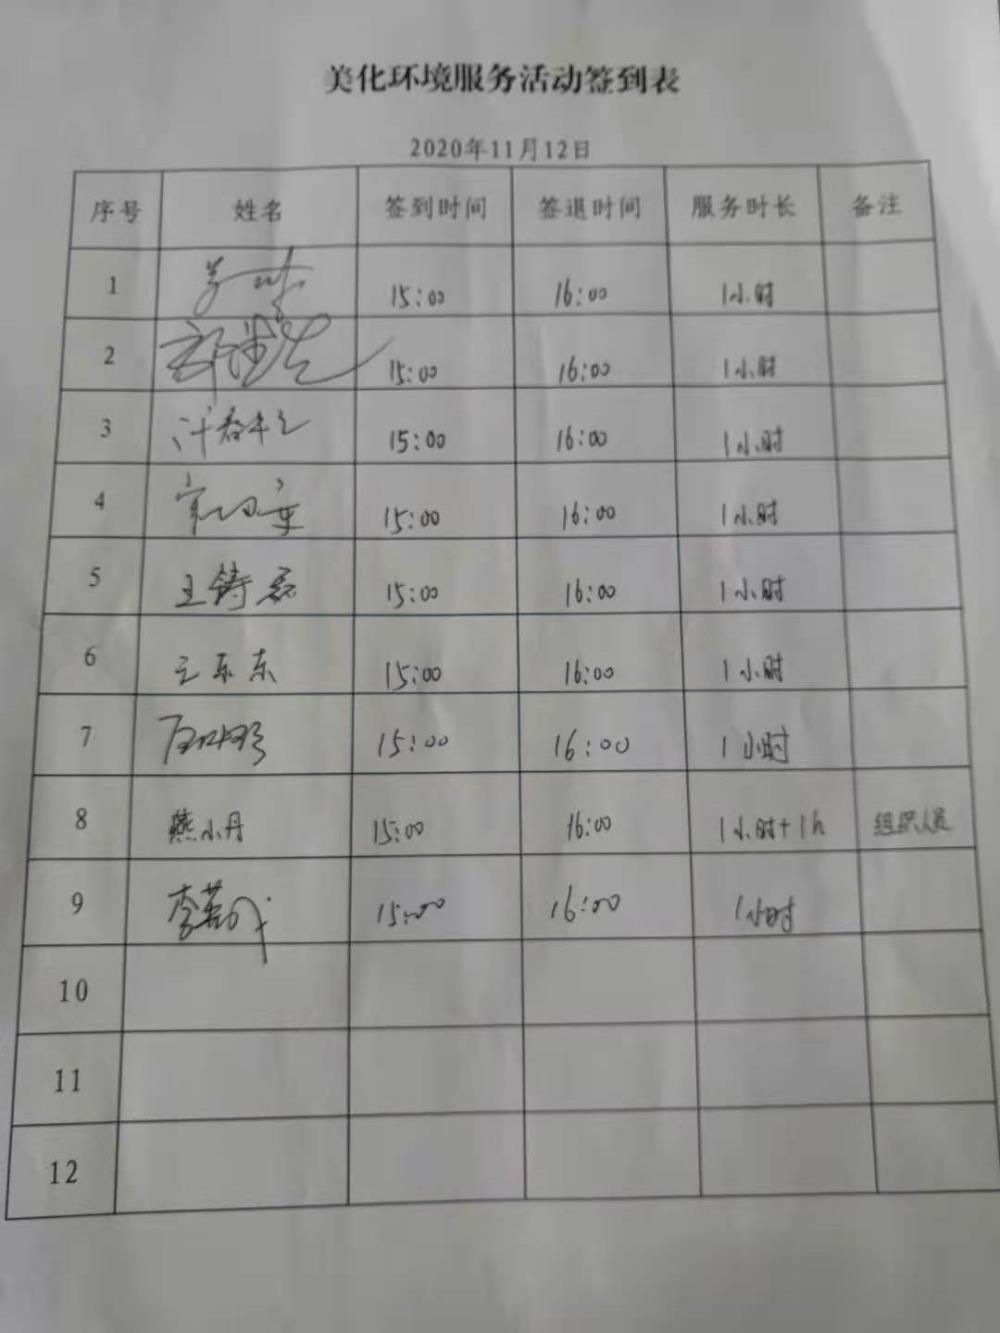 美化环境服务活动签到表
2020年11月12日
序号 姓名 签到时间 签退时间 服务时长 备注
1 15:00 16:00 1小时
2 15:00 16:00 1小时
3 15:00 16:00 1小时
4 15:00 16:00 1小时
5 王铸磊 15:00 16:00 1小时
6 王东东 15:00 16:00 1小时
7 15:00 16:00 1小时
8 燕小丹 15:00 16:00 1小时+1h 组织人员
9 李若成 15:00 16:00 1小时
10
11
12